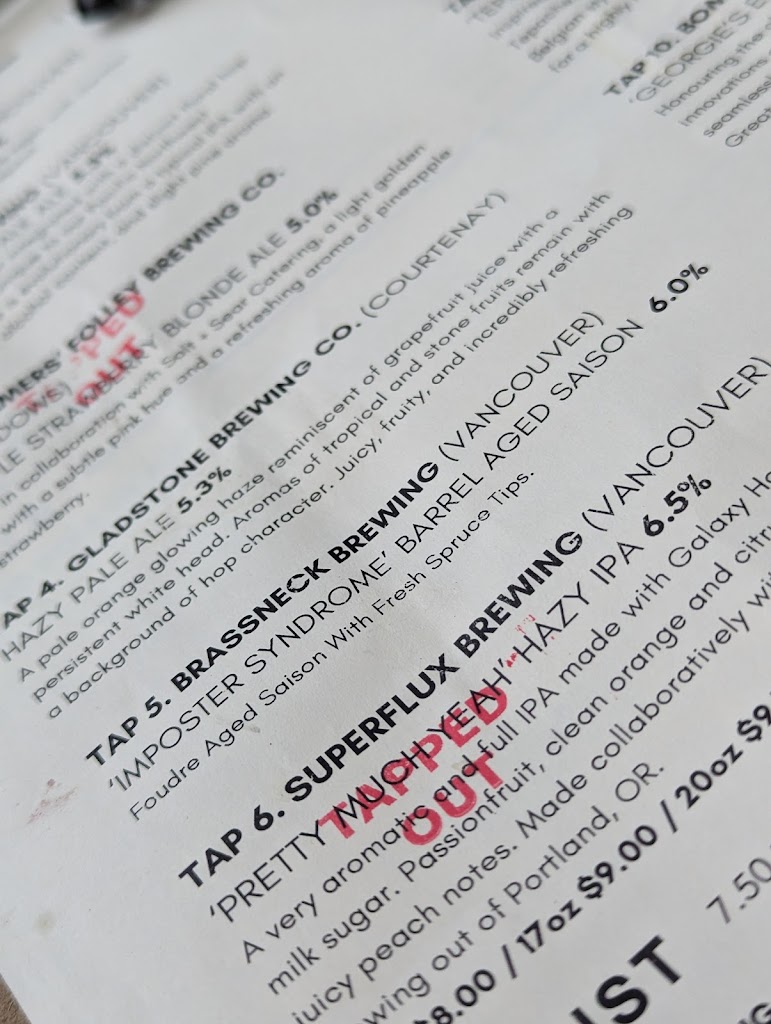 (VANCOUVER)
ALE 4.5%
FOLLEY BREWING CO.
STRAWBERRY BLONDE ALE 5.0%
in collaboration with Salt + Sear Catering, a light golden
with a subtle pink hue and a refreshing aroma of pineapple
strawberry.
OUT
AP 4. GLADSTONE BREWING CO. (COURTENAY)
HAZY PALE ALE 5.3%
A pale orange glowing haze reminiscent of grapefruit juice with a
persistent white head. Aromas of tropical and stone fruits remain with
a background of hop character. Juicy, fruity, and incredibly refreshing
TAP 5. BRASSNECK BREWING (VANCOUVER)
'IMPOSTER SYNDROME' BARREL AGED SAISON 6.0%
Foudre Aged Saison With Fresh Spruce Tips.
TAP 6. SUPERFLUX BREWING (VANCOUVER)
'PRETTY MUCH YEAH' HAZY IPA 6.5%
TAPPED
OUT
A very aromatic and full IPA made with Galaxy
milk sugar. Passionfruit, clean orange and
juicy peach notes. Made collaboratively
out of Portland, OR.
8.00 / 17oz $9.00 / 20oz $9
7.50
Belgian
for a
TAP 10.
'GEORGIE'S
Honouring the
innovations
seamless
Great